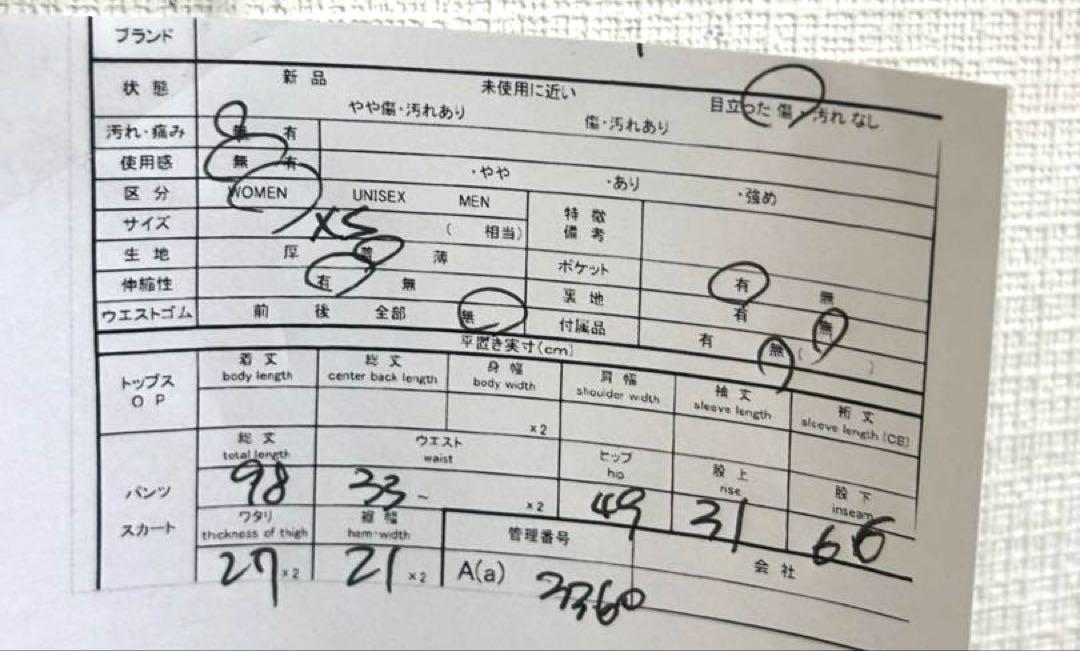 ブランド
状態 新品 未使用に近い 目立った傷・汚れなし
やや傷・汚れあり 傷・汚れあり
汚れ・痛み 無 有
使用感 無 有 ・やや ・あり ・強め
区分 WOMEN UNISEX MEN 特徴備考
サイズ XS ( 相当)
生地 厚 普 薄 ポケット 有 無
伸縮性 有 無 裏地 有 無
ウエストゴム 前 後 全部 無 付属品 有 無 ( )
平置き実寸(cm)
トップス OP
着丈 総丈 身幅 肩幅 袖丈 裄丈
body length center back length body width shoulder width sleeve length sleeve length (CB)
×2
パンツ スカート
総丈 ウエスト ヒップ 股上 股下
total length waist hip rise inseam
98 33 ~ ×2 49 31 66
ワタリ 裾幅 管理番号 会社
thickness of thigh hem-width
27 ×2 21 ×2 A(a)